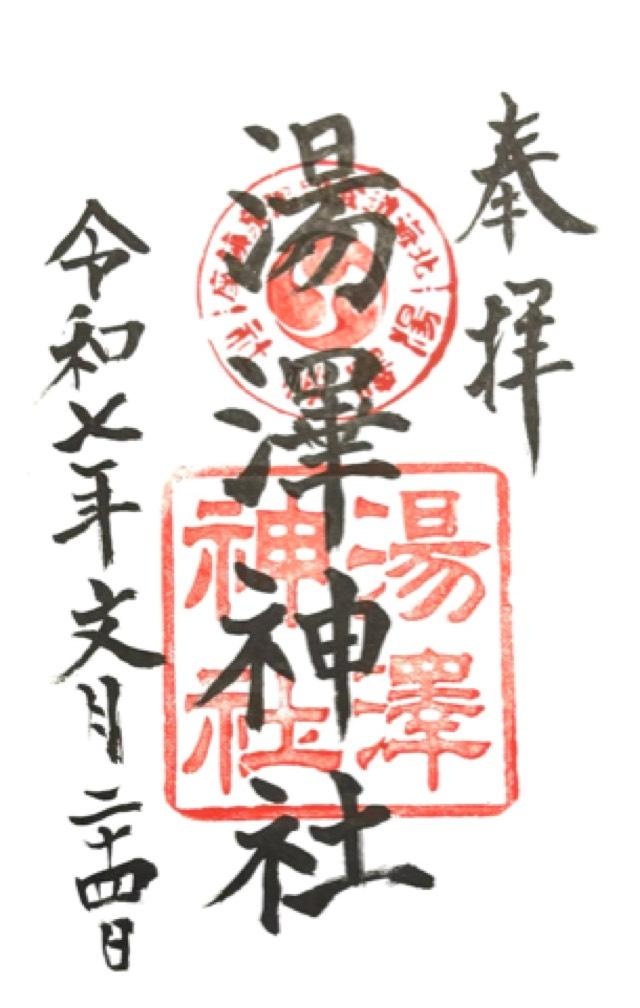 奉拝
湯澤神社
令和七年文月二十四日
湯澤
神社